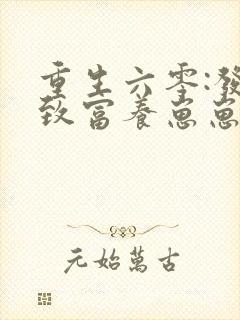 重生六零:發
致富養崽崽
元始萬古